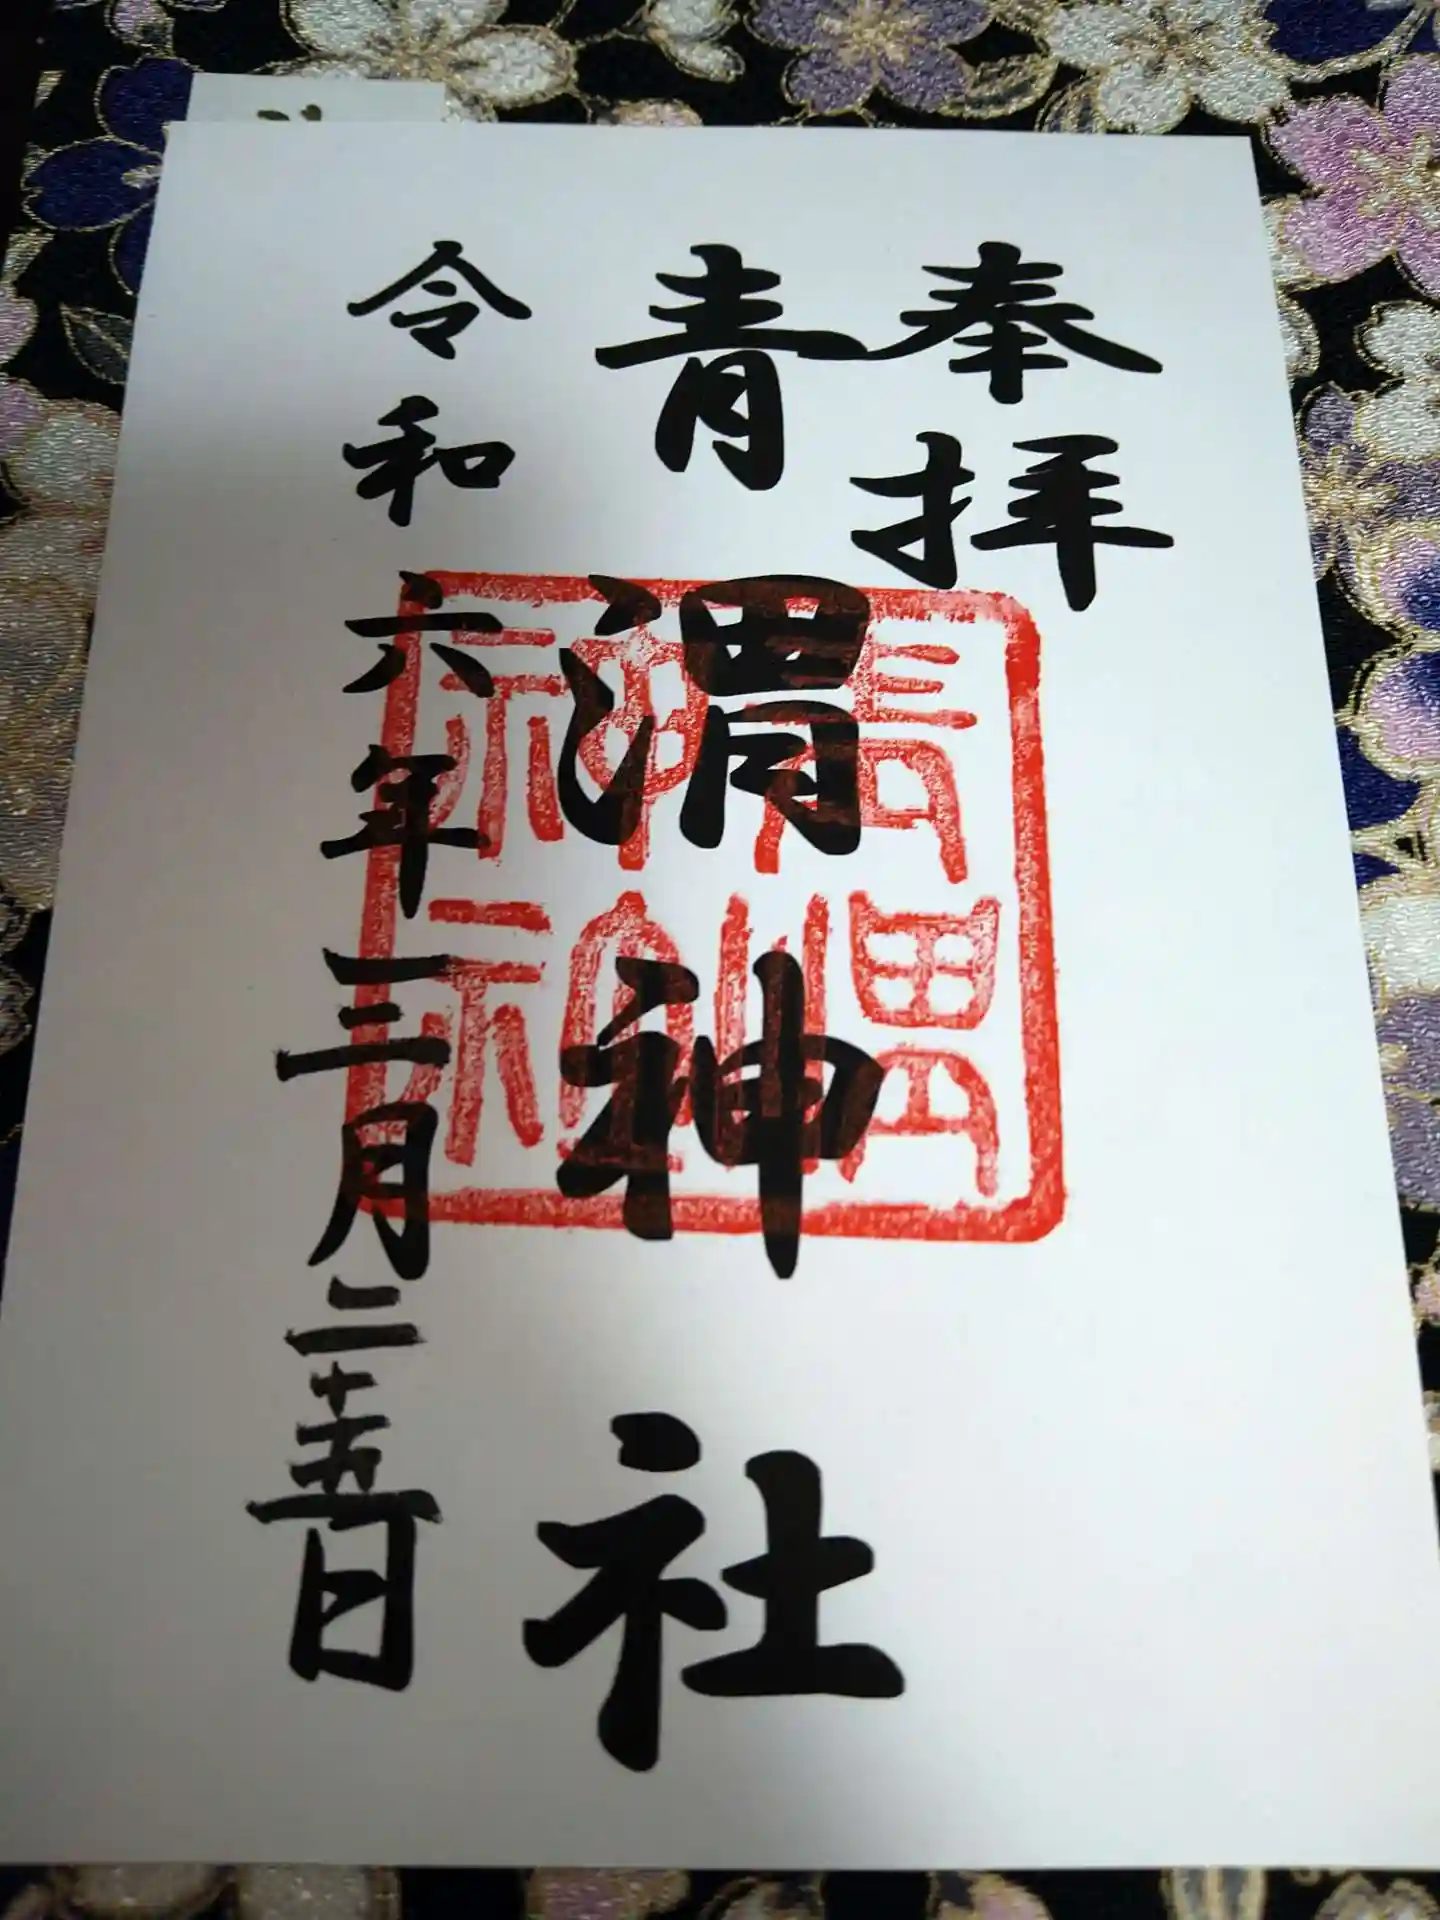 奉拝
青渭神社
令和六年三月二十五日
青渭神社